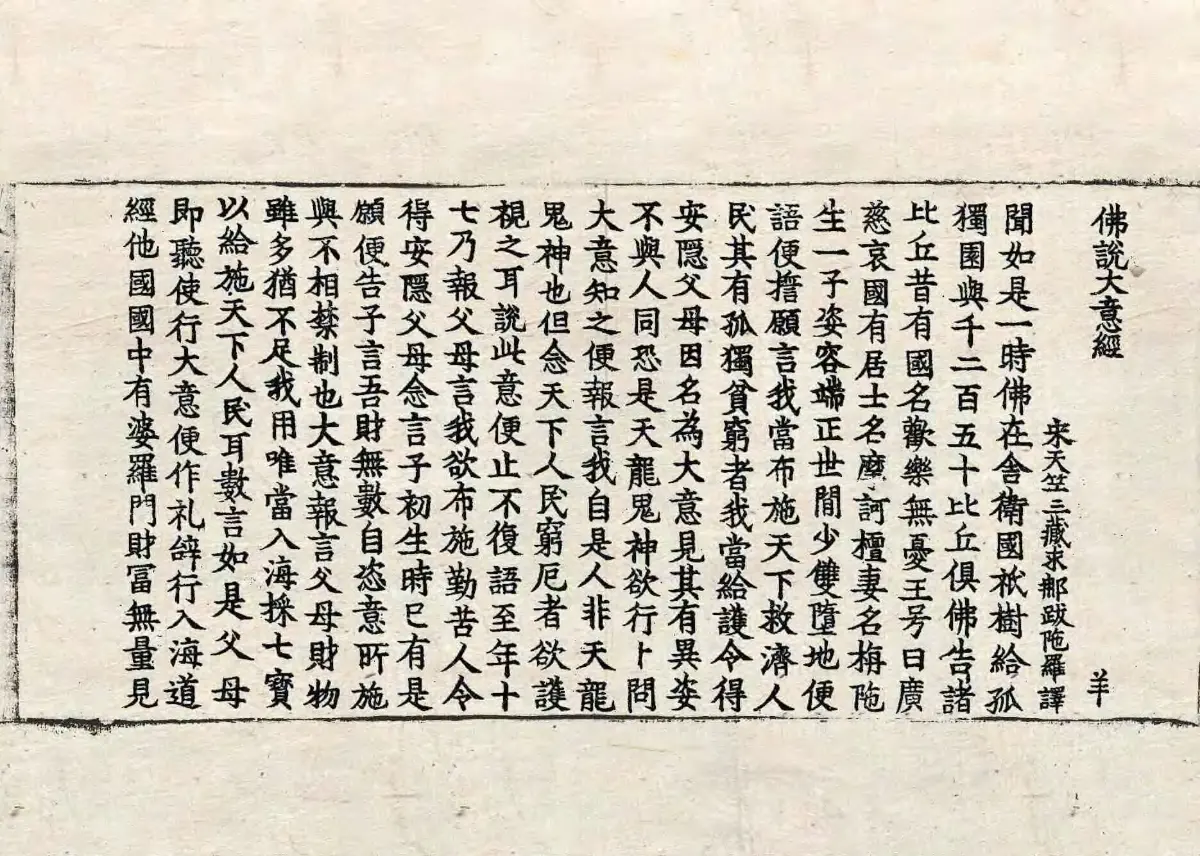 佛說大意經
羊
宋天竺三藏求郍跋陁羅譯
聞如是一時佛在舍衛國祇樹給孤
獨園與千二百五十比丘俱佛告諸
比丘昔有國名歡樂無憂王号曰廣
慈哀國有居士名摩訶檀妻名栴陁
生一子姿容端正世閒少雙墮地便
語便擔願言我當布施天下救濟人
民其有孤獨貧窮者我當給護令得
安隱父母因名為大意見其有異姿
不與人同恐是天龍鬼神欲行卜問
大意知之便報言我自是人非天龍
鬼神也但念天下人民窮厄者欲護
視之耳說此意便止不復語至年十
七乃報父母言我欲布施勤苦人令
得安隱父母念言子初生時已有是
願便告子言吾財無數自恣意所施
與不相禁制也大意報言父母財物
雖多猶不足我用唯當入海採七寶
以給施天下人民耳數言如是父母
即聽使行大意便作礼辝行入海道
經他國國中有婆羅門財冨無量見